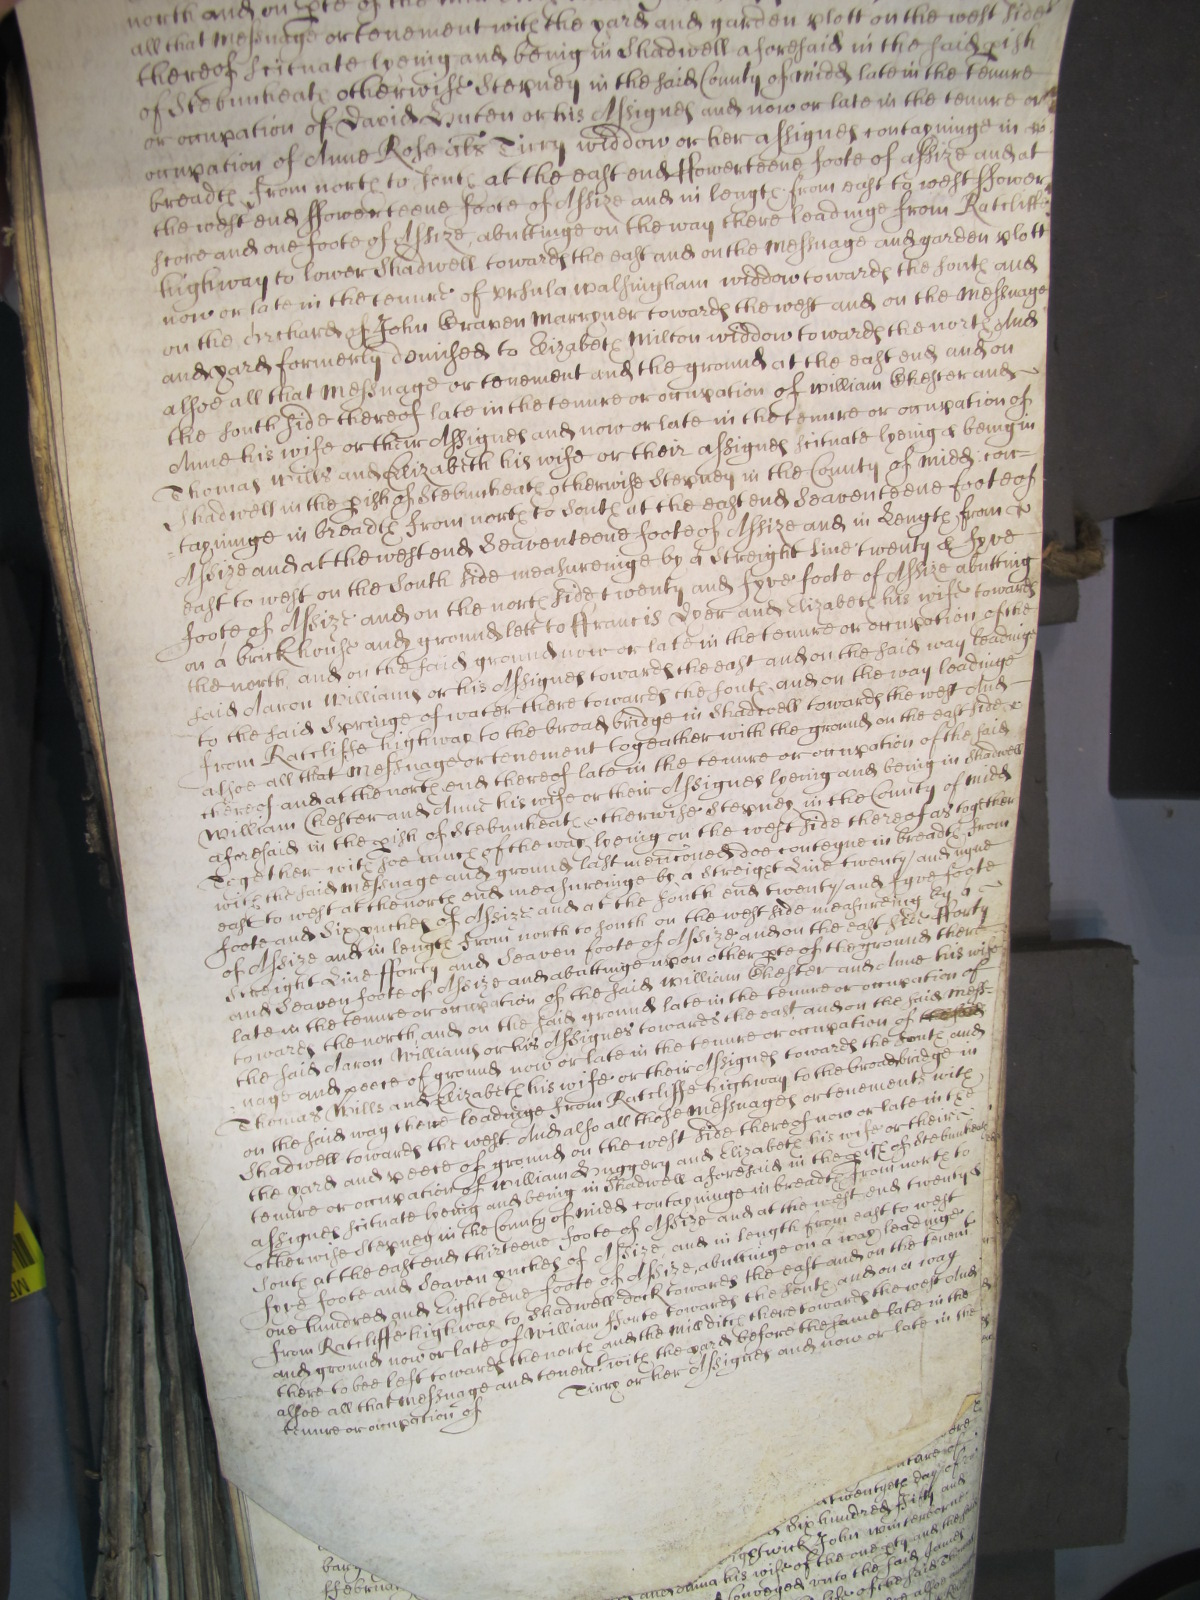 north and on pte of the
all that Messuage or tenement with the yard and garden plott on the west side
thereof scituate lyeing and being in Shadwell aforesaid in the said pish
of Stebunheath otherwise Stepney in the said County of Midd late in the tenure
or occupation of David Guten or his Assignes and now or late in the tenure or
occupation of Anne Rose als Tirry widdow or her assignes contayninge in
breadth from north to south at the east end ffowerteene foote of assize and at
the west end ffowerteene foote of Assize and in length from east to west ffower
score and one foote of Assize, abuttinge on the way there leadinge from Ratcliffe
highway to lower Shadwell towards the east and on the Messuage and garden plott
now or late in the tenure of Ursula Walsingham widdow towards the south and
on the Orchard of John Craven Marryner towards the west and on the Messuage
and yard formerly demised to Elizabeth Milton widdow towards the north And
alsoe all that Messuage or tenement and the ground at the east end and on
the south side thereof late in the tenure or occupation of William Chester and
Anne his wife or their Assignes and now or late in the tenure or occupation of
Thomas Wills and Elizabeth his wife or their assignes scituate lyeing & being in
Shadwell in the pish of Stebunheath otherwise Stepney in the County of Midd con-
tayninge in breadth from north to south at the east end Seaventeene foote of
Assize and at the west end Seaventeene foote of Assize and in Length from
east to west on the South side measureinge by a Streight Line twenty & fyve
foote of Assize and on the north side twenty and fyve foote of Assize abutting
on a brick house and ground lett to ffrancis Dyer and Elizabeth his wife towards
the north, and on the said ground now or late in the tenure or occupation of the
said Aaron Williams or his Assignes towards the east and on the said way leading
to the said Springe of water there towards the south and on the way leadinge
from Ratcliffe highway to the broad bridge in Shadwell towards the west And
alsoe all that Messuage or tenement togeather with the ground on the east side
thereof and at the north end thereof late in the tenure or occupation of the said
William Chester and Anne his wife or their Assignes lyeing and being in Shadwell
aforesaid in the pish of Stebunheath otherwise Stepney in the County of Midd
Together with soe much of the way lyeing on the west side thereof as together
with the said Messuage and ground last menconed doe conteyne in breadth from
east to west at the north end measureinge by a Streight Line twenty and nyne
foote and Six ynches of Assize and at the south end twenty and fyve foote
of Assize and in length from north to south on the west side measureing by a
Streight Line fforty and Seaven foote of Assize and on the east side fforty
and Seaven foote of Assize and abuttinge upon other pte of the ground there
late in the tenure or occupation of the said William Chester and Anne his wife
towards the north and on the said ground late in the tenure or occupation of
the said Aaron Williams or his Assignes towards the east, and on the said Mess-
uage and peece of ground now or late in the tenure or occupation of
Thomas Wills and Elizabeth his wife or their Assignes towards the south and
on the said way there leadinge from Ratcliffe highway to the broad bridge in
Shadwell towards the west And also all those Messuages or tenements with
the yard and peece of ground on the west side thereof now or late in the
tenure or occupation of William Duggery and Elizabeth his wife or their
assignes scituate lyeing and being in Shadwell aforesaid in the pish of Stebunheath
otherwise Stepney in the County of Midd contayninge in breadth from north to
south at the east end thirteene foote of Assize and at the west end twenty
fyve foote and Seaven ynches of Assize, and in length from east to west
one hundred and Eighteene foote of Assize, abuttinge on a way leadinge
from Ratcliffe highway to Shadwell dock towards the east and on the tenemt
and ground now or late of William fforte towards the south and on a way
there to bee left towards the north and the mill ditch there towards the west And
alsoe all that Messuage and tenemt with the yard before the same late in the
tenure or occupation of Tirry or her Assignes and now or late in the
twentyeth day of
Six hundred fifty and
John Winterborne
his wife of the one pty and the
conveyed unto the said James
of the said
ffebruar